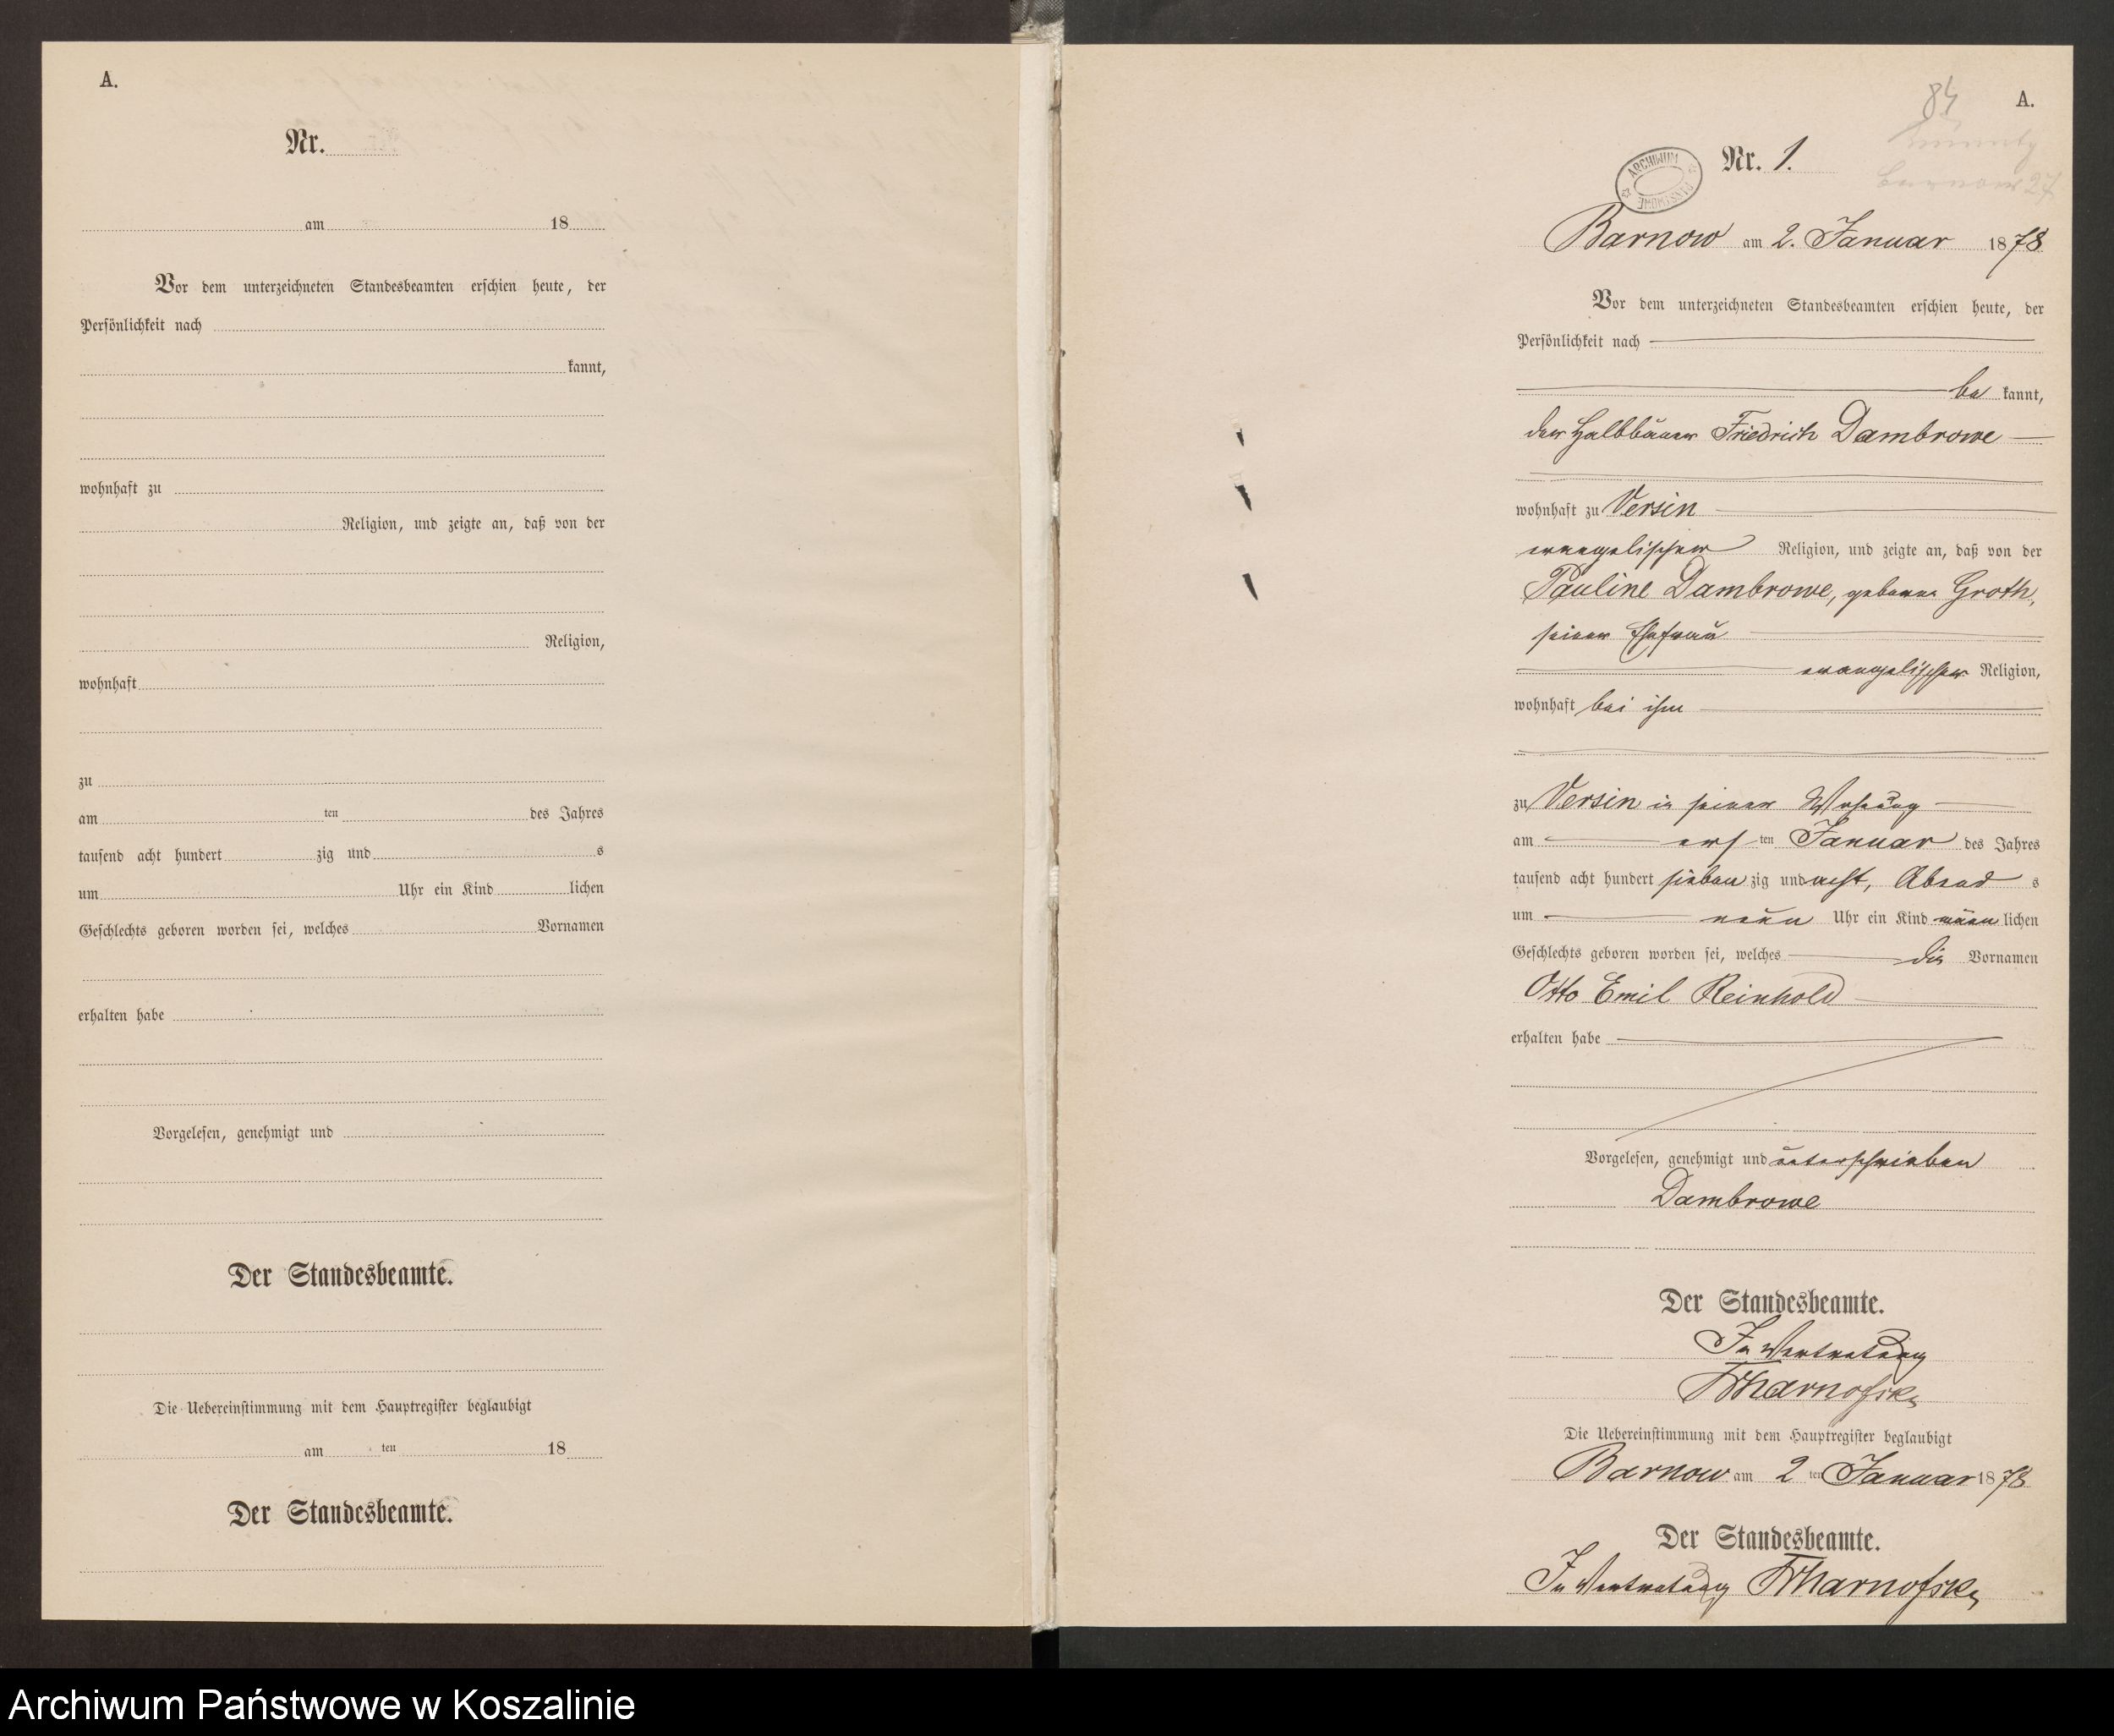 A.
Nr.
am 18
Vor dem unterzeichneten Standesbeamten erschien heute, der
Persönlichkeit nach
kannt,
wohnhaft zu
Religion, und zeigte an, daß von der
Religion,
wohnhaft
zu
am ten des Jahres
tausend acht hundert zig und s
um Uhr ein Kind lichen
Geschlechts geboren worden sei, welches Vornamen
erhalten habe
Vorgelesen, genehmigt und
Der Standesbeamte.
Die Uebereinstimmung mit dem Hauptregister beglaubigt
am ten 18
Der Standesbeamte.
84
A.
Nr. 1.
ARCHIWUM PAŃSTWOWE
Barnow am 2. Januar 1878
Vor dem unterzeichneten Standesbeamten erschien heute, der
Persönlichkeit nach
be kannt,
der Halbbauer Friedrich Dambrowe
wohnhaft zu Versin
evangelischer Religion, und zeigte an, daß von der
Pauline Dambrowe, geborne Groth,
seiner Ehefrau
evangelischer Religion,
wohnhaft bei ihm
zu Versin in seiner Wohnung
am ers ten Januar des Jahres
tausend acht hundert sieben zig und acht, Abend s
um neun Uhr ein Kind männ lichen
Geschlechts geboren worden sei, welches die Vornamen
Otto Emil Reinhold
erhalten habe
Vorgelesen, genehmigt und unterschrieben
Dambrowe
Der Standesbeamte.
In Vertretung
Die Uebereinstimmung mit dem Hauptregister beglaubigt
Barnow am 2 ten Januar 1878
Der Standesbeamte.
In Vertretung
Archiwum Państwowe w Koszalinie